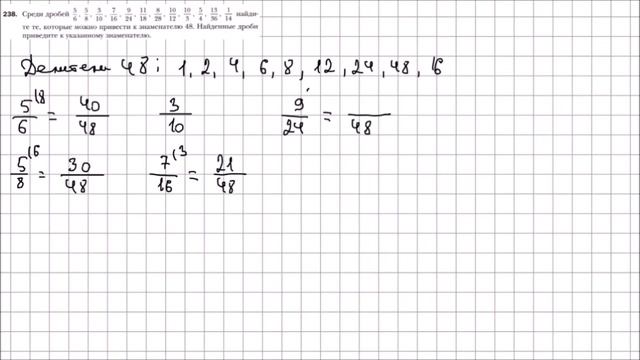 238. Среди дробей 5/6, 5/8, 3/10, 7/16, 9/24, 11/18, 8/28, 10/12, 10/3, 5/4, 13/36, 1/14 найди-
те те, которые можно привести к знаменателю 48. Найденные дроби
приведите к указанному знаменателю.
Делители 48: 1, 2, 4, 6, 8, 12, 24, 48, 16
5/6 (8 = 40/48 3/10 9/24 = /48
5/8 (6 = 30/48 7/16 (3 = 21/48